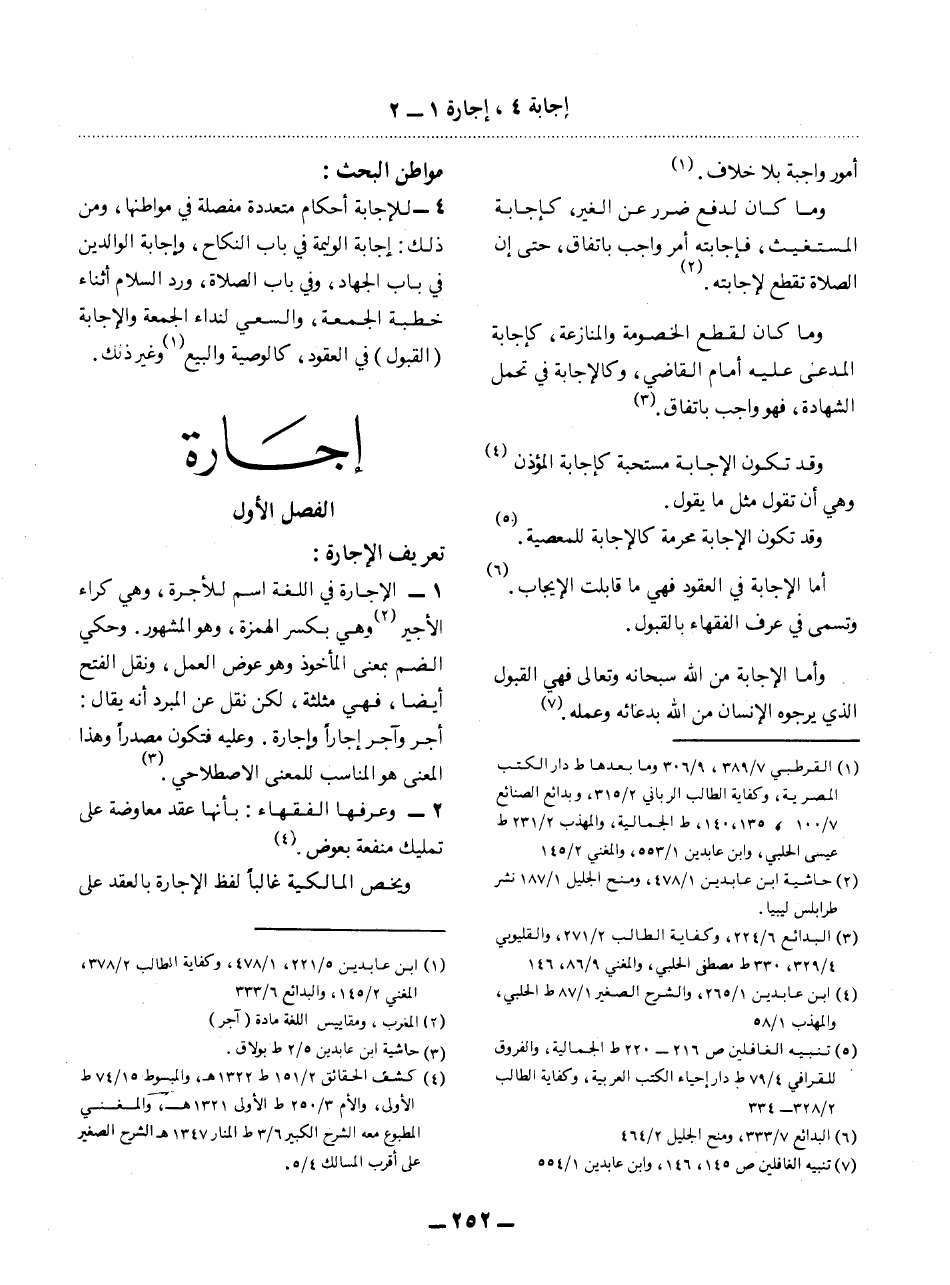 إجابة ٤ ، إجارة ١ ــ ٢
أمور واجبة بلا خلاف . (١)
وما كان لدفع ضرر عن الغير، كإجابة
المستغيث ، فإجابته أمر واجب باتفاق ، حتى إن
الصلاة تقطع لإجابته . (٢)
وما كان لقطع الخصومة والمنازعة ، كإجابة
المدعى عليه أمام القاضي، وكالإجابة في تحمل
الشهادة ، فهو واجب باتفاق . (٣)
وقد تكون الإجابة مستحبة كإجابة المؤذن (٤)
وهي أن تقول مثل ما يقول .
وقد تكون الإجابة محرمة كالإجابة للمعصية . (٥)
أما الإجابة في العقود فهي ما قابلت الإيجاب . (٦)
وتسمى في عرف الفقهاء بالقبول .
وأما الإجابة من الله سبحانه وتعالى فهي القبول
الذي يرجوه الإنسان من الله بدعائه وعمله . (٧)
(١) القرطبي ٣٨٩/٧ ، ٣٠٦/٩ وما بعدها ط دار الكتب
المصرية، وكفاية الطالب الرباني ٣١٥/٢، وبدائع الصنائع
١٠٠/٧ ، ١٣٥، ١٤٠، ط الجمالية، والمهذب ٢٣١/٢ ط
عيسى الحلبي، وابن عابدين ٥٥٣/١، والمغني ١٤٥/٢
(٢) حاشية ابن عابدين ٤٧٨/١، ومنح الجليل ١٨٧/١ نشر
طرابلس ليبيا .
(٣) البدائع ٢٢٤/٦، وكفاية الطالب ٢٧١/٢، والقليوبي
٣٢٩/٤، ٣٣٠ ط مصطفى الحلبي، والمغني ٨٦/٩، ١٤٦
(٤) ابن عابدين ٢٦٥/١، والشرح الصغير ٨٧/١ ط الحلبي،
والمهذب ٥٨/١
(٥) تنبيه الغافلين ص ٢١٦ ــ ٢٢٠ ط الجمالية، والفروق
للقرافي ٧٩/٤ ط دار إحياء الكتب العربية، وكفاية الطالب
٣٢٨/٢ــ ٣٣٤
(٦) البدائع ٣٣٣/٧، ومنح الجليل ٤٦٤/٢
(٧) تنبيه الغافلين ص ١٤٥، ١٤٦، وابن عابدين ٥٥٤/١
مواطن البحث :
٤ ــ للإجابة أحكام متعددة مفصلة في مواطنها ، ومن
ذلك : إجابة الوليمة في باب النكاح ، وإجابة الوالدين
في باب الجهاد، وفي باب الصلاة، ورد السلام أثناء
خطبة الجمعة، والسعي لنداء الجمعة والإجابة
(القبول) في العقود، كالوصية والبيع (١) وغير ذلك .
إجَارة
الفصل الأول
تعريف الإجارة :
١ ــ الإجارة في اللغة اسم للأجرة، وهي كراء
الأجير (٢) وهي بكسر الهمزة، وهو المشهور. وحكي
الضم بمعنى المأخوذ وهو عوض العمل، ونقل الفتح
أيضا ، فهي مثلثة ، لكن نقل عن المبرد أنه يقال :
أجر وآجر إجاراً وإجارة . وعليه فتكون مصدراً وهذا
المعنى هو المناسب للمعنى الاصطلاحي . (٣)
٢ ــ وعرفها الفقهاء : بأنها عقد معاوضة على
تمليك منفعة بعوض . (٤)
ويخص المالكية غالباً لفظ الإجارة بالعقد على
(١) ابن عابدين ٢٢١/٥، ٤٧٨/١، وكفاية الطالب ٣٧٨/٢،
المغني ١٤٥/٢، والبدائع ٣٣٣/٦
(٢) المغرب ، ومقاييس اللغة مادة (آجر)
(٣) حاشية ابن عابدين ٢/٥ ط بولاق .
(٤) كشف الحقائق ١٥١/٢ ط ١٣٢٢ هـ، والمبسوط ٧٤/١٥ ط
الأولى، والأم ٢٥٠/٣ ط الأولى ١٣٢١ هـ، والمغني
المطبوع معه الشرح الكبير ٣/٦ ط المنار ١٣٤٧ هـ الشرح الصغير
على أقرب المسالك ٥/٤.
ــ ٢٥٢ ــ